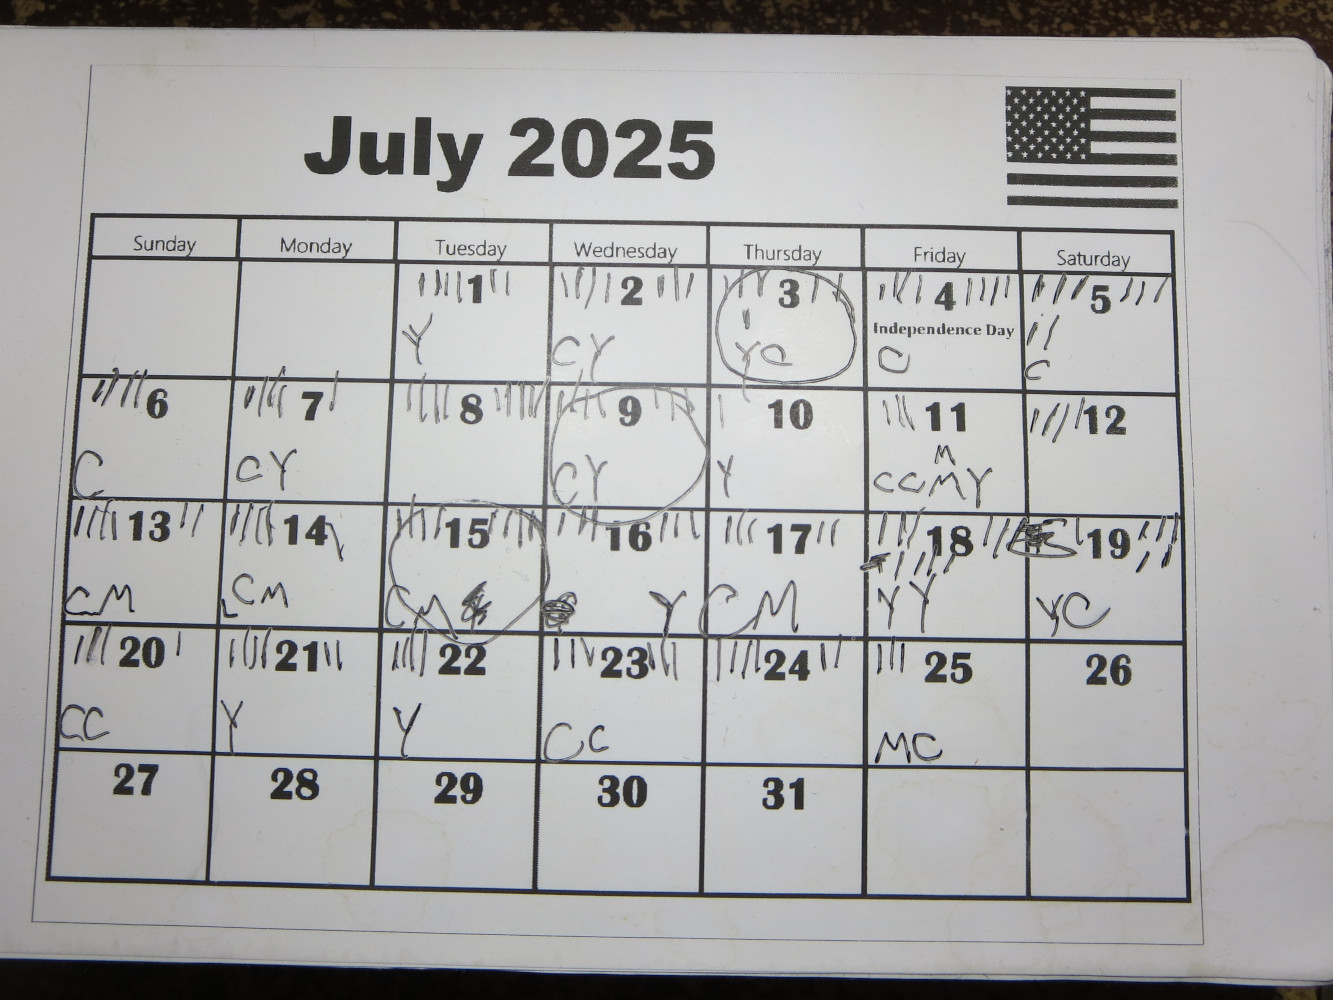 July 2025
Sunday Monday Tuesday Wednesday Thursday Friday Saturday
1 2 3 4 5
Independence Day
Y CY YC C C
6 7 8 9 10 11 12
M
C CY CY Y CCMY
13 14 15 16 17 18 19
CM CM CM Y CM YY YC
20 21 22 23 24 25 26
CC Y Y CC MC
27 28 29 30 31